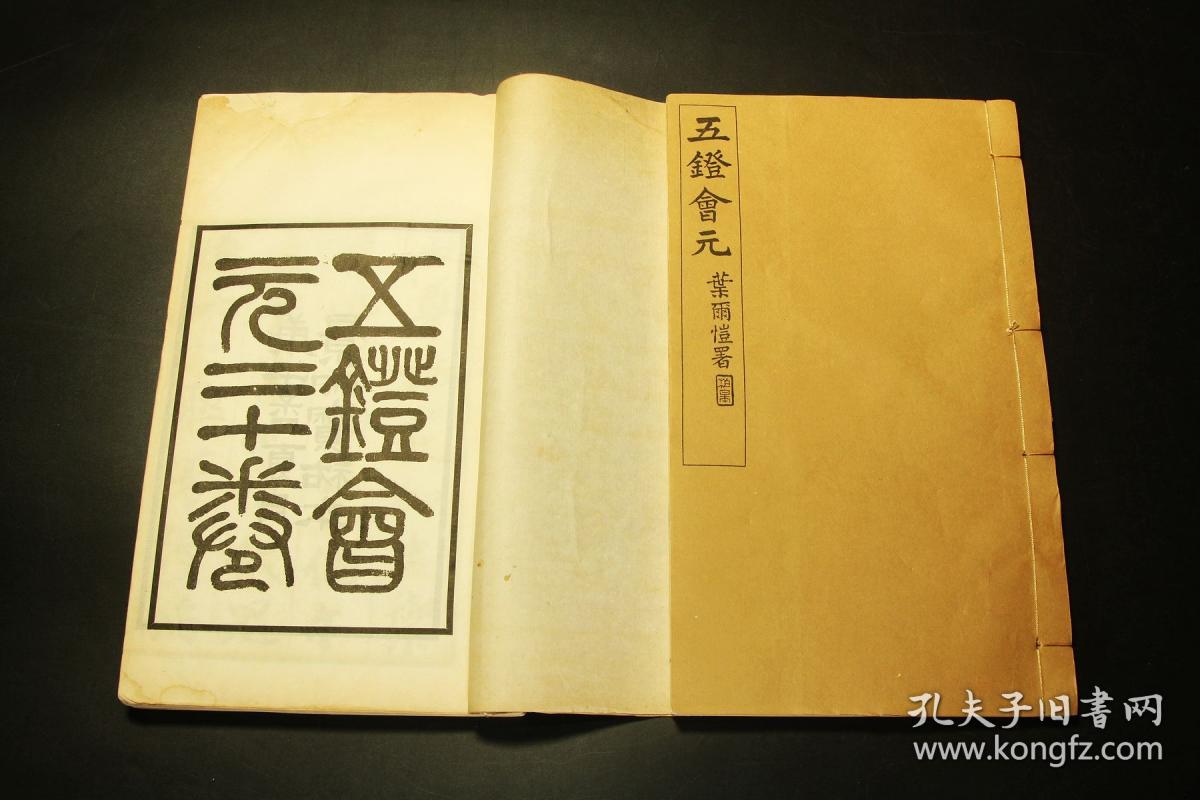 五鐙會元
葉爾愷署
五鐙會
元二十卷
孔夫子旧書网
www.kongfz.com